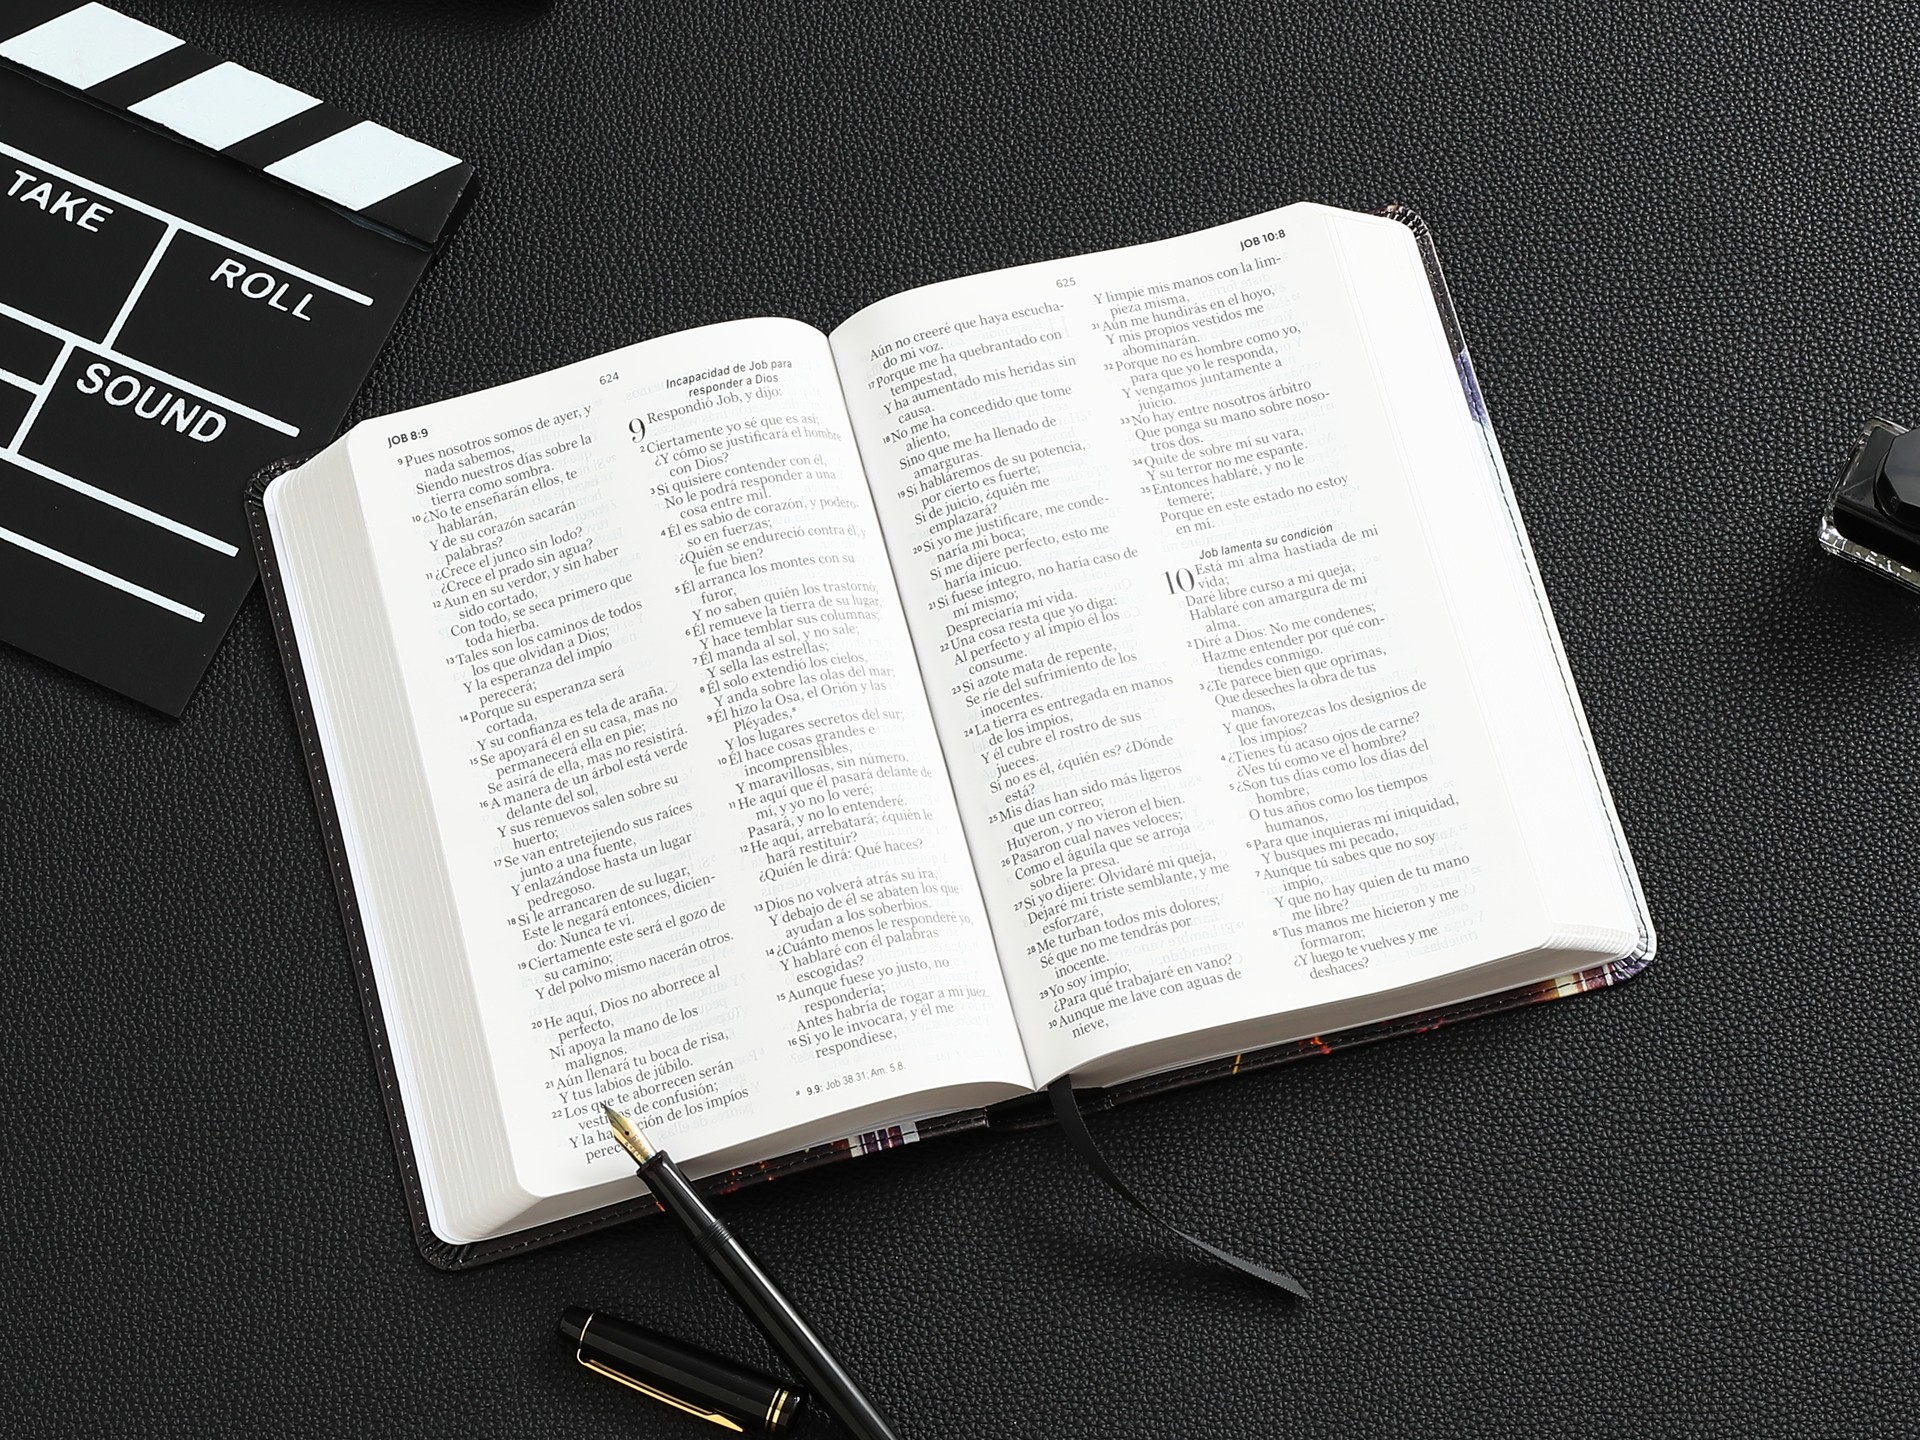 TAKE
ROLL
SOUND
JOB 8:9
624
9 Pues nosotros somos de ayer, y
nada sabemos,
Siendo nuestros días sobre la
tierra como sombra.
10 ¿No te enseñarán ellos, te
hablarán,
Y de su corazón sacarán
palabras?
11 ¿Crece el junco sin lodo?
¿Crece el prado sin agua?
12 Aun en su verdor, y sin haber
sido cortado,
Con todo, se seca primero que
toda hierba.
13 Tales son los caminos de todos
los que olvidan a Dios;
Y la esperanza del impío
perecerá;
14 Porque su esperanza será
cortada,
Y su confianza es tela de araña.
15 Se apoyará él en su casa, mas no
permanecerá ella en pie;
Se asirá de ella, mas no resistirá.
16 A manera de un árbol está verde
delante del sol,
Y sus renuevos salen sobre su
huerto;
17 Se van entretejiendo sus raíces
junto a una fuente,
Y enlazándose hasta un lugar
pedregoso.
18 Si le arrancaren de su lugar,
Este le negará entonces, dicien-
do: Nunca te vi.
19 Ciertamente este será el gozo de
su camino;
Y del polvo mismo nacerán otros.
20 He aquí, Dios no aborrece al
perfecto,
Ni apoya la mano de los
malignos.
21 Aún llenará tu boca de risa,
Y tus labios de júbilo.
22 Los que te aborrecen serán
de confusión;
Y la ción de los impíos
Incapacidad de Job para
responder a Dios
9 Respondió Job, y dijo:
2 Ciertamente yo sé que es así;
¿Y cómo se justificará el hombre
con Dios?
3 Si quisiere contender con él,
No le podrá responder a una
cosa entre mil.
4 Él es sabio de corazón, y podero-
so en fuerzas;
¿Quién se endureció contra él, y
le fue bien?
5 Él arranca los montes con su
furor,
Y no saben quién los trastornó;
6 Él remueve la tierra de su lugar,
Y hace temblar sus columnas;
7 Él manda al sol, y no sale;
Y sella las estrellas;
8 Él solo extendió los cielos,
Y anda sobre las olas del mar;
9 Él hizo la Osa, el Orión y las
Pléyades,
Y los lugares secretos del sur;
10 Él hace cosas grandes e
incomprensibles,
Y maravillosas, sin número.
11 He aquí que él pasará delante de
mí, y yo no lo veré;
Pasará, y no lo entenderé.
12 He aquí, arrebatará; ¿quién le
hará restituir?
¿Quién le dirá: Qué haces?
13 Dios no volverá atrás su ira,
Y debajo de él se abaten los que
ayudan a los soberbios.
14 ¿Cuánto menos le responderé yo,
Y hablaré con él palabras
escogidas?
15 Aunque fuese yo justo, no
respondería;
Antes habría de rogar a mi juez.
16 Si yo le invocara, y él me
respondiese,
9.9: Job 38.31; Am. 5.8.
625
JOB 10:8
Aún no creeré que haya escucha-
do mi voz.
17 Porque me ha quebrantado con
tempestad,
Y ha aumentado mis heridas sin
causa.
18 No me ha concedido que tome
aliento,
Sino que me ha llenado de
amarguras.
19 Si habláremos de su potencia,
por cierto es fuerte;
Si de juicio, ¿quién me
emplazará?
20 Si yo me justificare, me conde-
naría mi boca;
Si me dijere perfecto, esto me
haría inicuo.
21 Si fuese íntegro, no haría caso de
mí mismo;
Despreciaría mi vida.
22 Una cosa resta que yo diga:
Al perfecto y al impío él los
consume.
23 Si azote mata de repente,
Se ríe del sufrimiento de los
inocentes.
24 La tierra es entregada en manos
de los impíos,
Y él cubre el rostro de sus
jueces.
Si no es él, ¿quién es? ¿Dónde
está?
25 Mis días han sido más ligeros
que un correo;
Huyeron, y no vieron el bien.
26 Pasaron cual naves veloces;
Como el águila que se arroja
sobre la presa.
27 Si yo dijere: Olvidaré mi queja,
Dejaré mi triste semblante, y me
esforzaré,
28 Me turban todos mis dolores;
Sé que no me tendrás por
inocente.
29 Yo soy impío;
¿Para qué trabajaré en vano?
30 Aunque me lave con aguas de
nieve,
Y limpie mis manos con la lim-
pieza misma,
31 Aún me hundirás en el hoyo,
Y mis propios vestidos me
abominarán.
32 Porque no es hombre como yo,
para que yo le responda,
Y vengamos juntamente a
juicio.
33 No hay entre nosotros árbitro
Que ponga su mano sobre noso-
tros dos.
34 Quite de sobre mí su vara,
Y su terror no me espante.
35 Entonces hablaré, y no le
temeré;
Porque en este estado no estoy
en mí.
Job lamenta su condición
10 Está mi alma hastiada de mi
vida;
Daré libre curso a mi queja,
Hablaré con amargura de mi
alma.
2 Diré a Dios: No me condenes;
Hazme entender por qué con-
tiendes conmigo.
3 ¿Te parece bien que oprimas,
Que deseches la obra de tus
manos,
Y que favorezcas los designios de
los impíos?
4 ¿Tienes tú acaso ojos de carne?
¿Ves tú como ve el hombre?
5 ¿Son tus días como los días del
hombre,
O tus años como los tiempos
humanos,
6 Para que inquieras mi iniquidad,
Y busques mi pecado,
7 Aunque tú sabes que no soy
impío,
Y que no hay quien de tu mano
me libre?
8 Tus manos me hicieron y me
formaron;
¿Y luego te vuelves y me
deshaces?